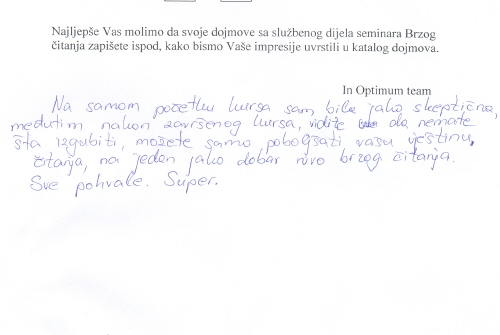 Najljepše Vas molimo da svoje dojmove sa službenog dijela seminara Brzog
čitanja zapišete ispod, kako bismo Vaše impresije uvrstili u katalog dojmova.
In Optimum team
Na samom početku kursa sam bila jako skeptična,
međutim nakon završenog kursa, vidiže da nemate
šta izgubiti, možete samo pobogšati vašu vještinu,
čitanja, na jedan jako dobar nivo brzog čitanja.
Sve pohvale. Super.